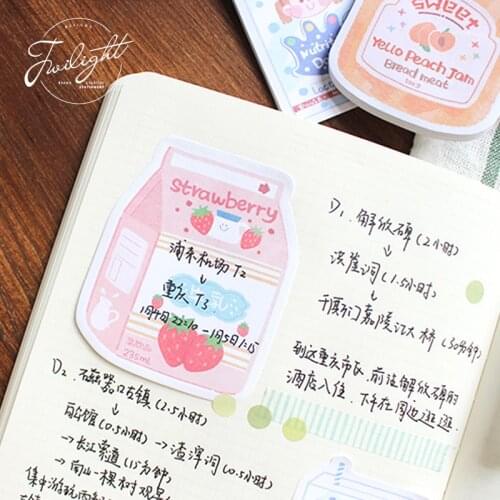 Twilight
Nutri
sweet
Yello Peach Jam
Bread meat
strawberry
浦东机场 T2
↓
重庆 T3
1月4日 22:10-1月5日 1:15
235ml
D1. 解放碑 (2小时)
↓
洪崖洞 (1.5小时)
↓
千厮门嘉陵江大桥 (30分钟)
到达重庆市区,前往解放碑的
酒店入住,下午在周边逛逛.
D2. 磁器口古镇 (2.5小时)
↓
(0.5小时) → 渣滓洞 (0.5小时)
→ 长江索道 (15分钟)
→ 南山一棵树观景
集中游玩